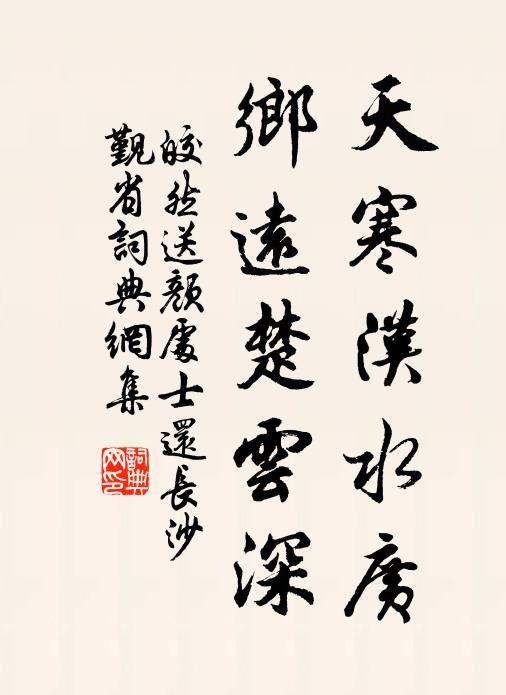 天寒漢水廣
鄉遠楚雲深
皎然送顏處士還長沙
覲省詞典網集
詞典网印